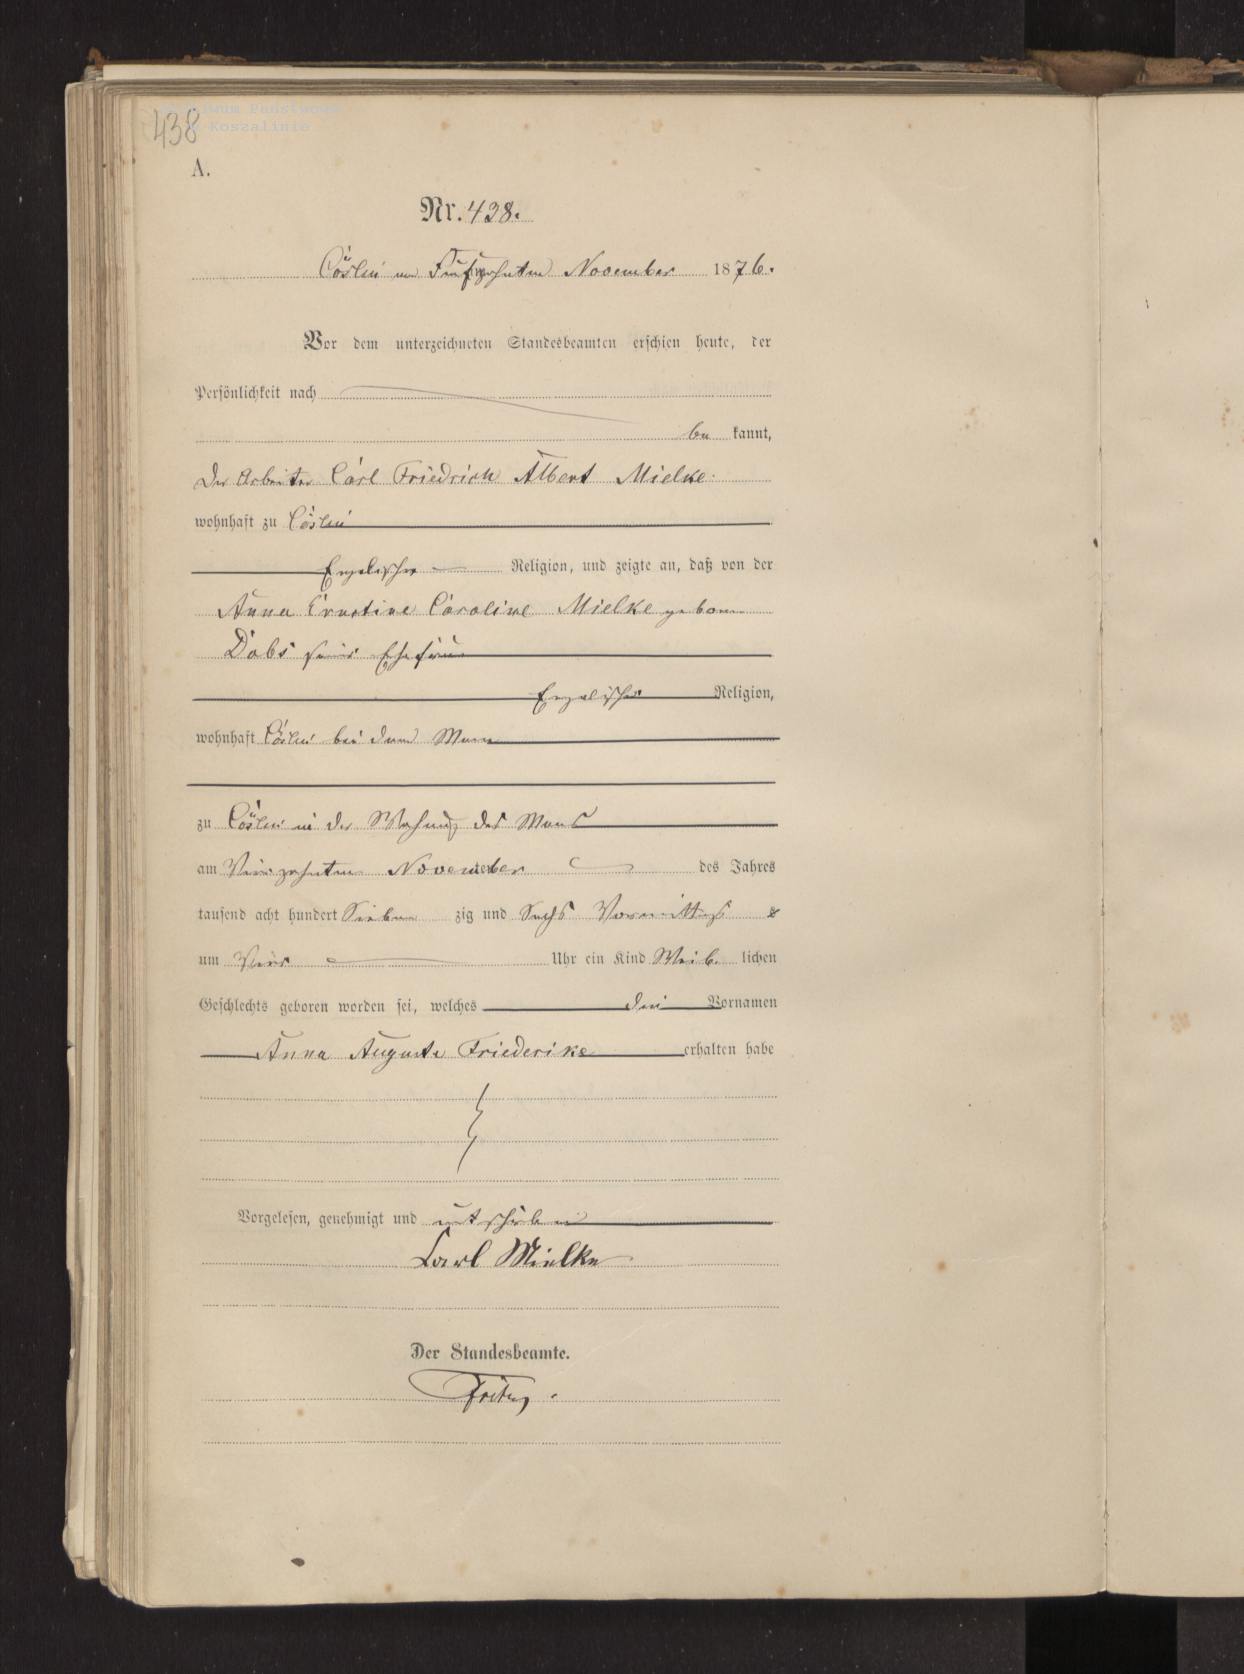 438
Archiwum Państwowe
w Koszalinie
A.
Nr. 438.
Cöslin am Fünfzehnten November 1876.
Vor dem unterzeichneten Standesbeamten erschien heute, der
Persönlichkeit nach
be kannt,
der Arbeiter Carl Friedrich Albert Mielke
wohnhaft zu Cöslin
Religion, und zeigte an, daß von der
Anna Ernstine Caroline Mielke geborne
Dobs seiner Ehefrau
Religion,
wohnhaft Cöslin bei dem Mann
zu Cöslin in der Wohnung des Manns
am Vierzehnten November des Jahres
tausend acht hundert Sieben zig und Sechs Vormittags
um Vier Uhr ein Kind Weib lichen
Geschlechts geboren worden sei, welches die Vornamen
Anna Auguste Friederike erhalten habe
Vorgelesen, genehmigt und unterschrieben
Carl Mielke
Der Standesbeamte.